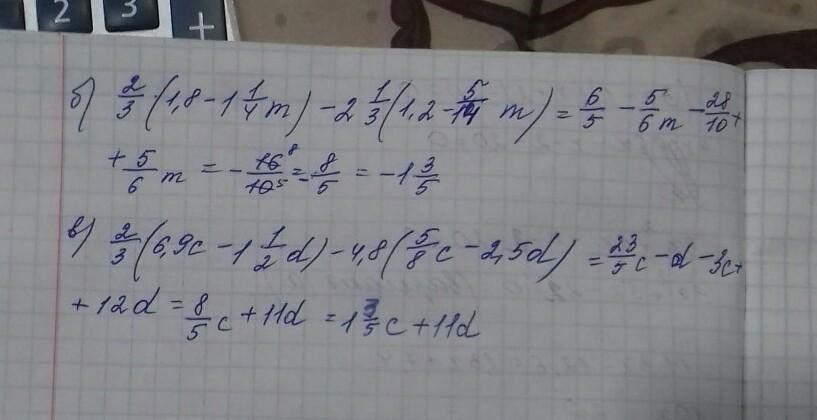 2 3 +
б) 2/3 (1,8 - 1 1/4 m) - 2 1/3 (1,2 - 5/14 m) = 6/5 - 5/6 m - 28/10 +
+ 5/6 m = - 16/10 = - 8/5 = -1 3/5
в) 2/3 (6,9c - 1 1/2 d) - 4,8 (5/8 c - 2,5d) = 23/5 c - d - 3c +
+ 12d = 8/5 c + 11d = 1 3/5 c + 11d